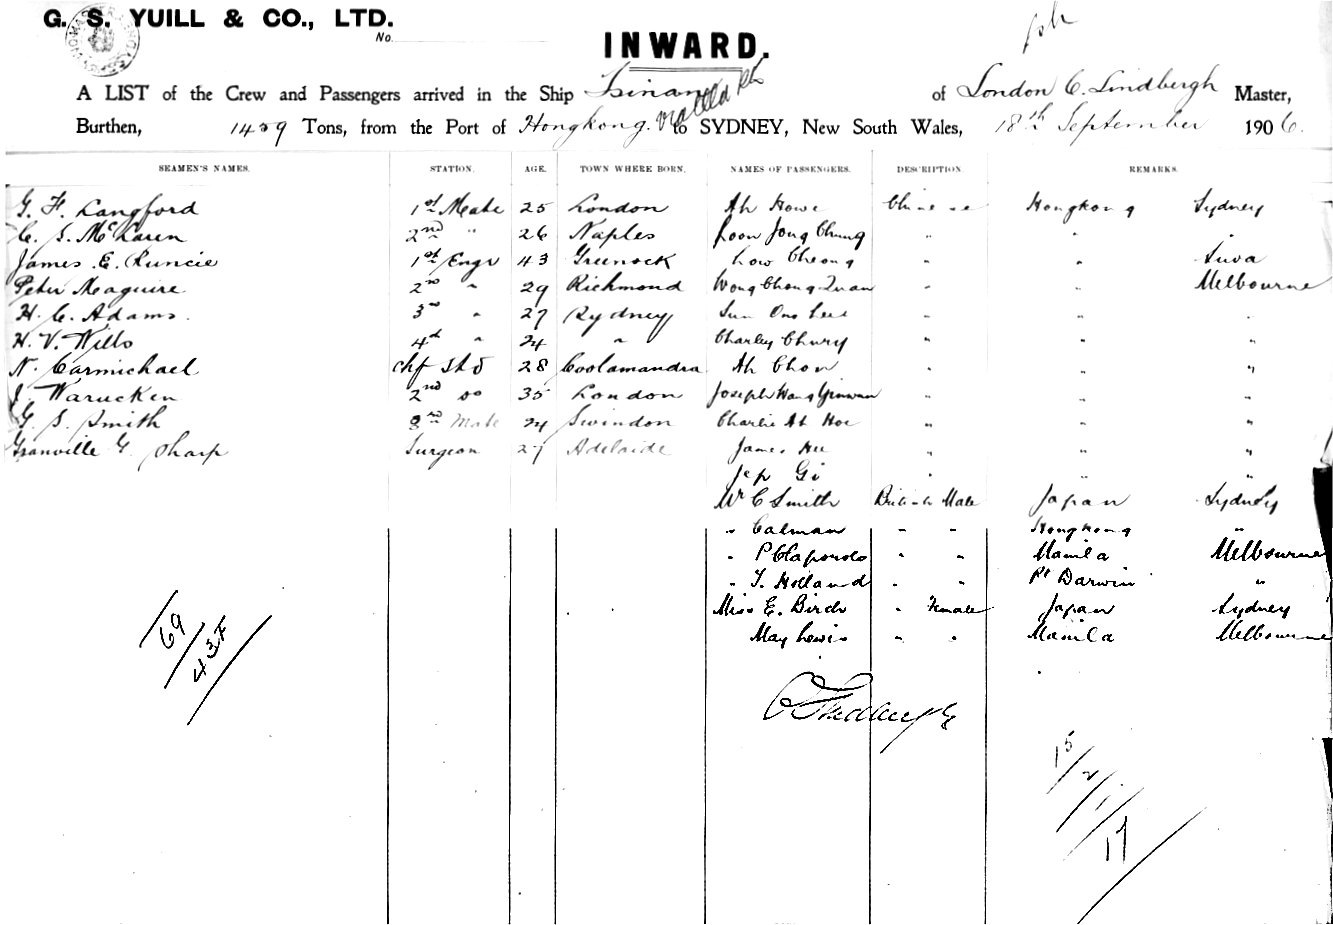 G. S. YUILL & CO., LTD.
No.
INWARD.
A LIST of the Crew and Passengers arrived in the Ship Tsinan of London C. Lindbergh Master,
Burthen, 1459 Tons, from the Port of Hongkong. via to SYDNEY, New South Wales, 18th September 1906.
SEAMEN'S NAMES. STATION. AGE. TOWN WHERE BORN. NAMES OF PASSENGERS. DESCRIPTION REMARKS.
G. F. Langford 1st Mate 25 London Ah Howe Chinese Hongkong Sydney
C. S. McLaren 2nd " 26 Naples Loon Jong Chung " " "
James E. Runcie 1st Engr 43 Greenock Low Cheong " " Suva
Peter Meaguire 2nd " 29 Richmond Wong Chong Quan " " Melbourne
H. C. Adams. 3rd " 27 Sydney Sun One Lee " " "
H. V. Wills 4th " 24 " Charley Chury " " "
N. Carmichael Chf Std 28 Coolamandra Ah Chow " " "
J. Warucken 2nd do 35 London Joseph Hang " " "
G. S. Smith 3rd Mate 24 Swindon Charlie Ah Hoe " " "
Granville G. Sharp Surgeon 27 Adelaide James Hee " " "
Jep Gi " " "
Mr C Smith British Male Japan Sydney
" Calman " " Hongkong "
" P " " Manila Melbourne
" T. Holland " " Pt Darwin "
Miss E. Birch " Female Japan Sydney
May Lewis " " Manila Melbourne
69
43
C Lindbergh
15
2
1
17